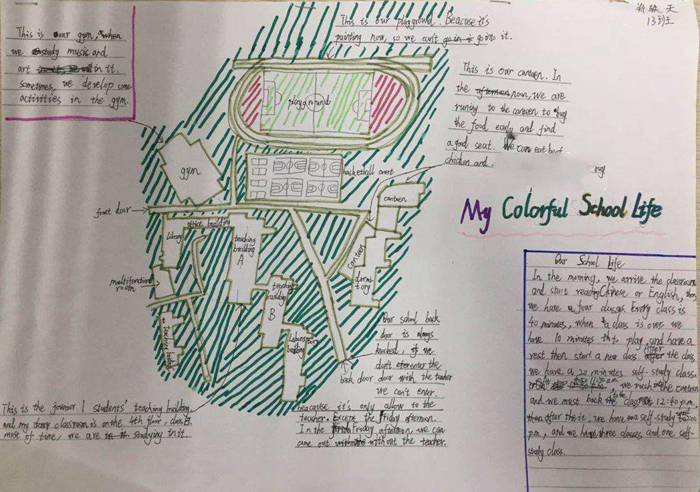 13班
This is our gym, when
we study music and
art in it.
sometimes, we develop some
activities in the gym.
This is our playground. Beacuse it's
painting now, so we can't go into it.
This is our canteen. In
the noon, we are
runing to the canteen to
the food early and find
a good seat. We can eat beef
chicken and.
playground
gym
basketball court
canteen
front door
office building
library
teaching
building
A
canteen
dormi
tory
teaching
building
B
room
Laboratory
building
back door
My Colorful School Life
Our School Life
In the morning, we arrive the classroom
and start reading Chinese or English, then
we have a four classes. Every class is
40 minutes, when a class is over we
have 10 minutes to play and have a
rest then start a new class. After the class
we have a 20 minutes self-study class.
we must the canteen
and we must back the class 12:40 p.m.
after the it, we have self-study
p.m, and we have three classes and one self-
study class.
Our school back
door is always
locked, if we
don't enter the
door with the teacher
we can't enter.
beacause it's only allow to the
teacher. Except the Friday afternoon.
In the Friday afternoon, we can
came out without the teacher.
This is the junior 1 students' teaching building,
and my classroom is on the 4th floor, class
most of time, we are studying in it.